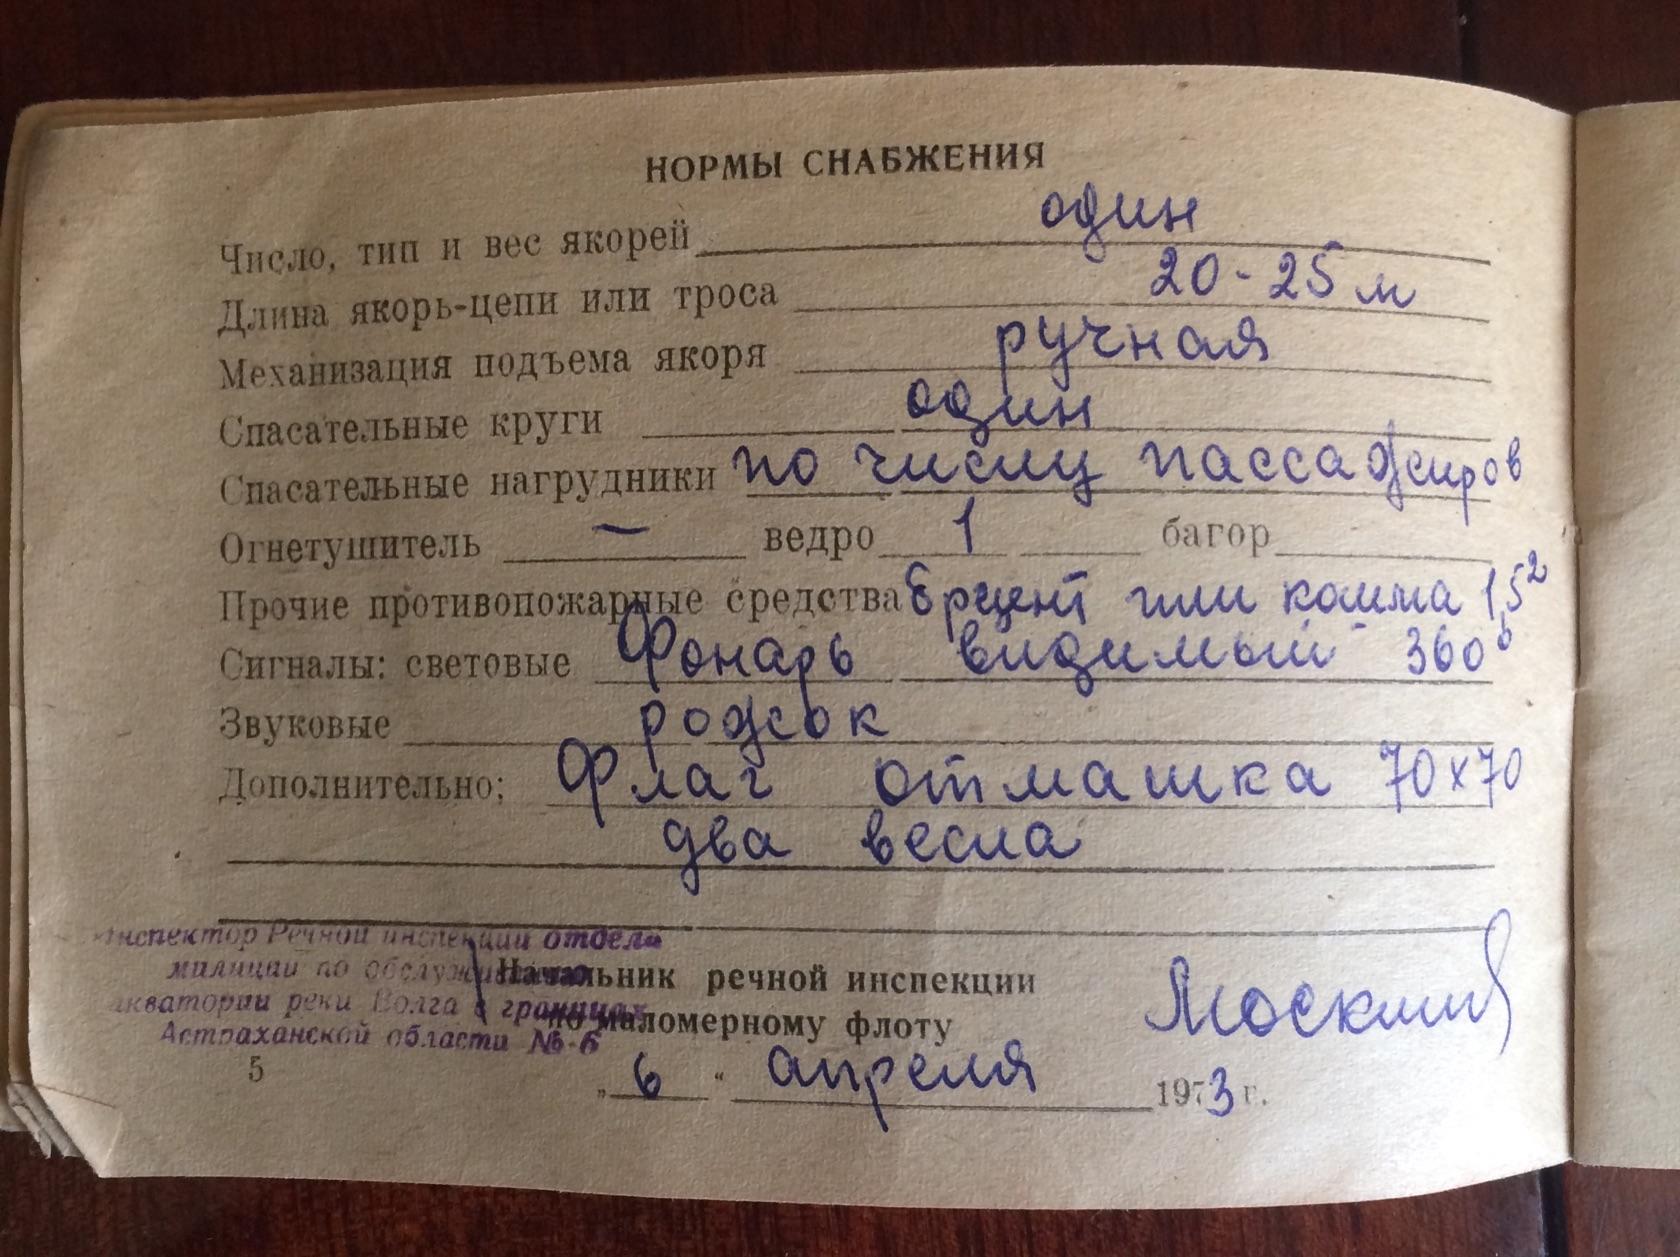 НОРМЫ СНАБЖЕНИЯ
Число, тип и вес якорей один
Длина якорь-цепи или троса 20-25 м
Механизация подъема якоря ручная
Спасательные круги один
Спасательные нагрудники по числу пассажиров
Огнетушитель — ведро 1 багор
Прочие противопожарные средства или кошма 1,5²
Сигналы: световые Фонарь видимый 360°
Звуковые рожок
Дополнительно: Флаг отмашка 70х70
два весла
Инспектор Речной инспекции отдела
милиции по обслуживанию
акватории реки Волга в границах
Астраханской области № 6
Начальник речной инспекции
по маломерному флоту
5
„6“ апреля 1973 г.